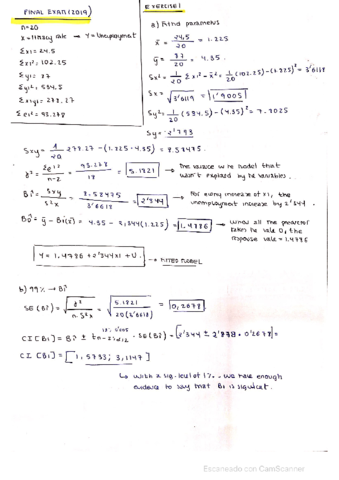 FINAL EXAM (2019)
EXERCISE 1
n=20
x = literacy rate → Y = Unemployment
Σxi = 24.5
Σxi² = 102.25
Σyi = 87
Σyi² = 534,5
Σxiyi = 277.27
Σei² = 93.278
a) Find parameters
x̄ = 24,5/20 = 1.225
ȳ = 87/20 = 4.35
Sx² = 1/20 Σxi² - x̄² = 1/20 (102.25) - (1.225)² = 3'6118
Sx = √3'6119 = 1'9005
Sy² = 1/20 (534.5) - (4.35)² = 7.8025
Sy = 2'793
Sxy = 1/20 277.27 - (1.225 · 4.35) = 8.53475
σ̂² = Σei²/n-2 = 93.278/18 = 5.1821 → the variance in the model that wasn't explained by the variables.
B̂1 = Sxy/S²x = 8.53475/3'6118 = 2'344 → For every increase of x1, the unemployment increase by 2'344.
B̂0 = ȳ - B1(x̄) = 4.35 - 2,344(1.225) = 1.4786 → When all the predictor takes the value 0, the response value = 1.4786
Y = 1,4786 + 2'344x1 + U. → FITTED MODEL
b) 99% → B1
SE(B1) = √σ̂²/n·S²x = √5.1821/20(3'6118) = 0,2678
CI [B1] = B1 ± tn-2, α/2 · SE(B1) = [2'344 ± 2'878 · 0'2678] =
CI [B1] = [1,5733; 3,1147]
↳ with a sig. level of 1%, we have enough evidence to say that B1 is significant.
Escaneado con CamScanner